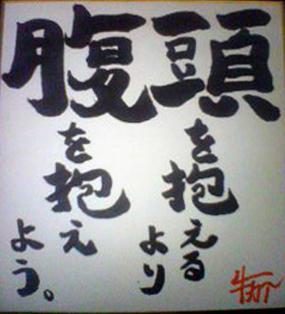 頭を抱えるより
腹を抱えよう。